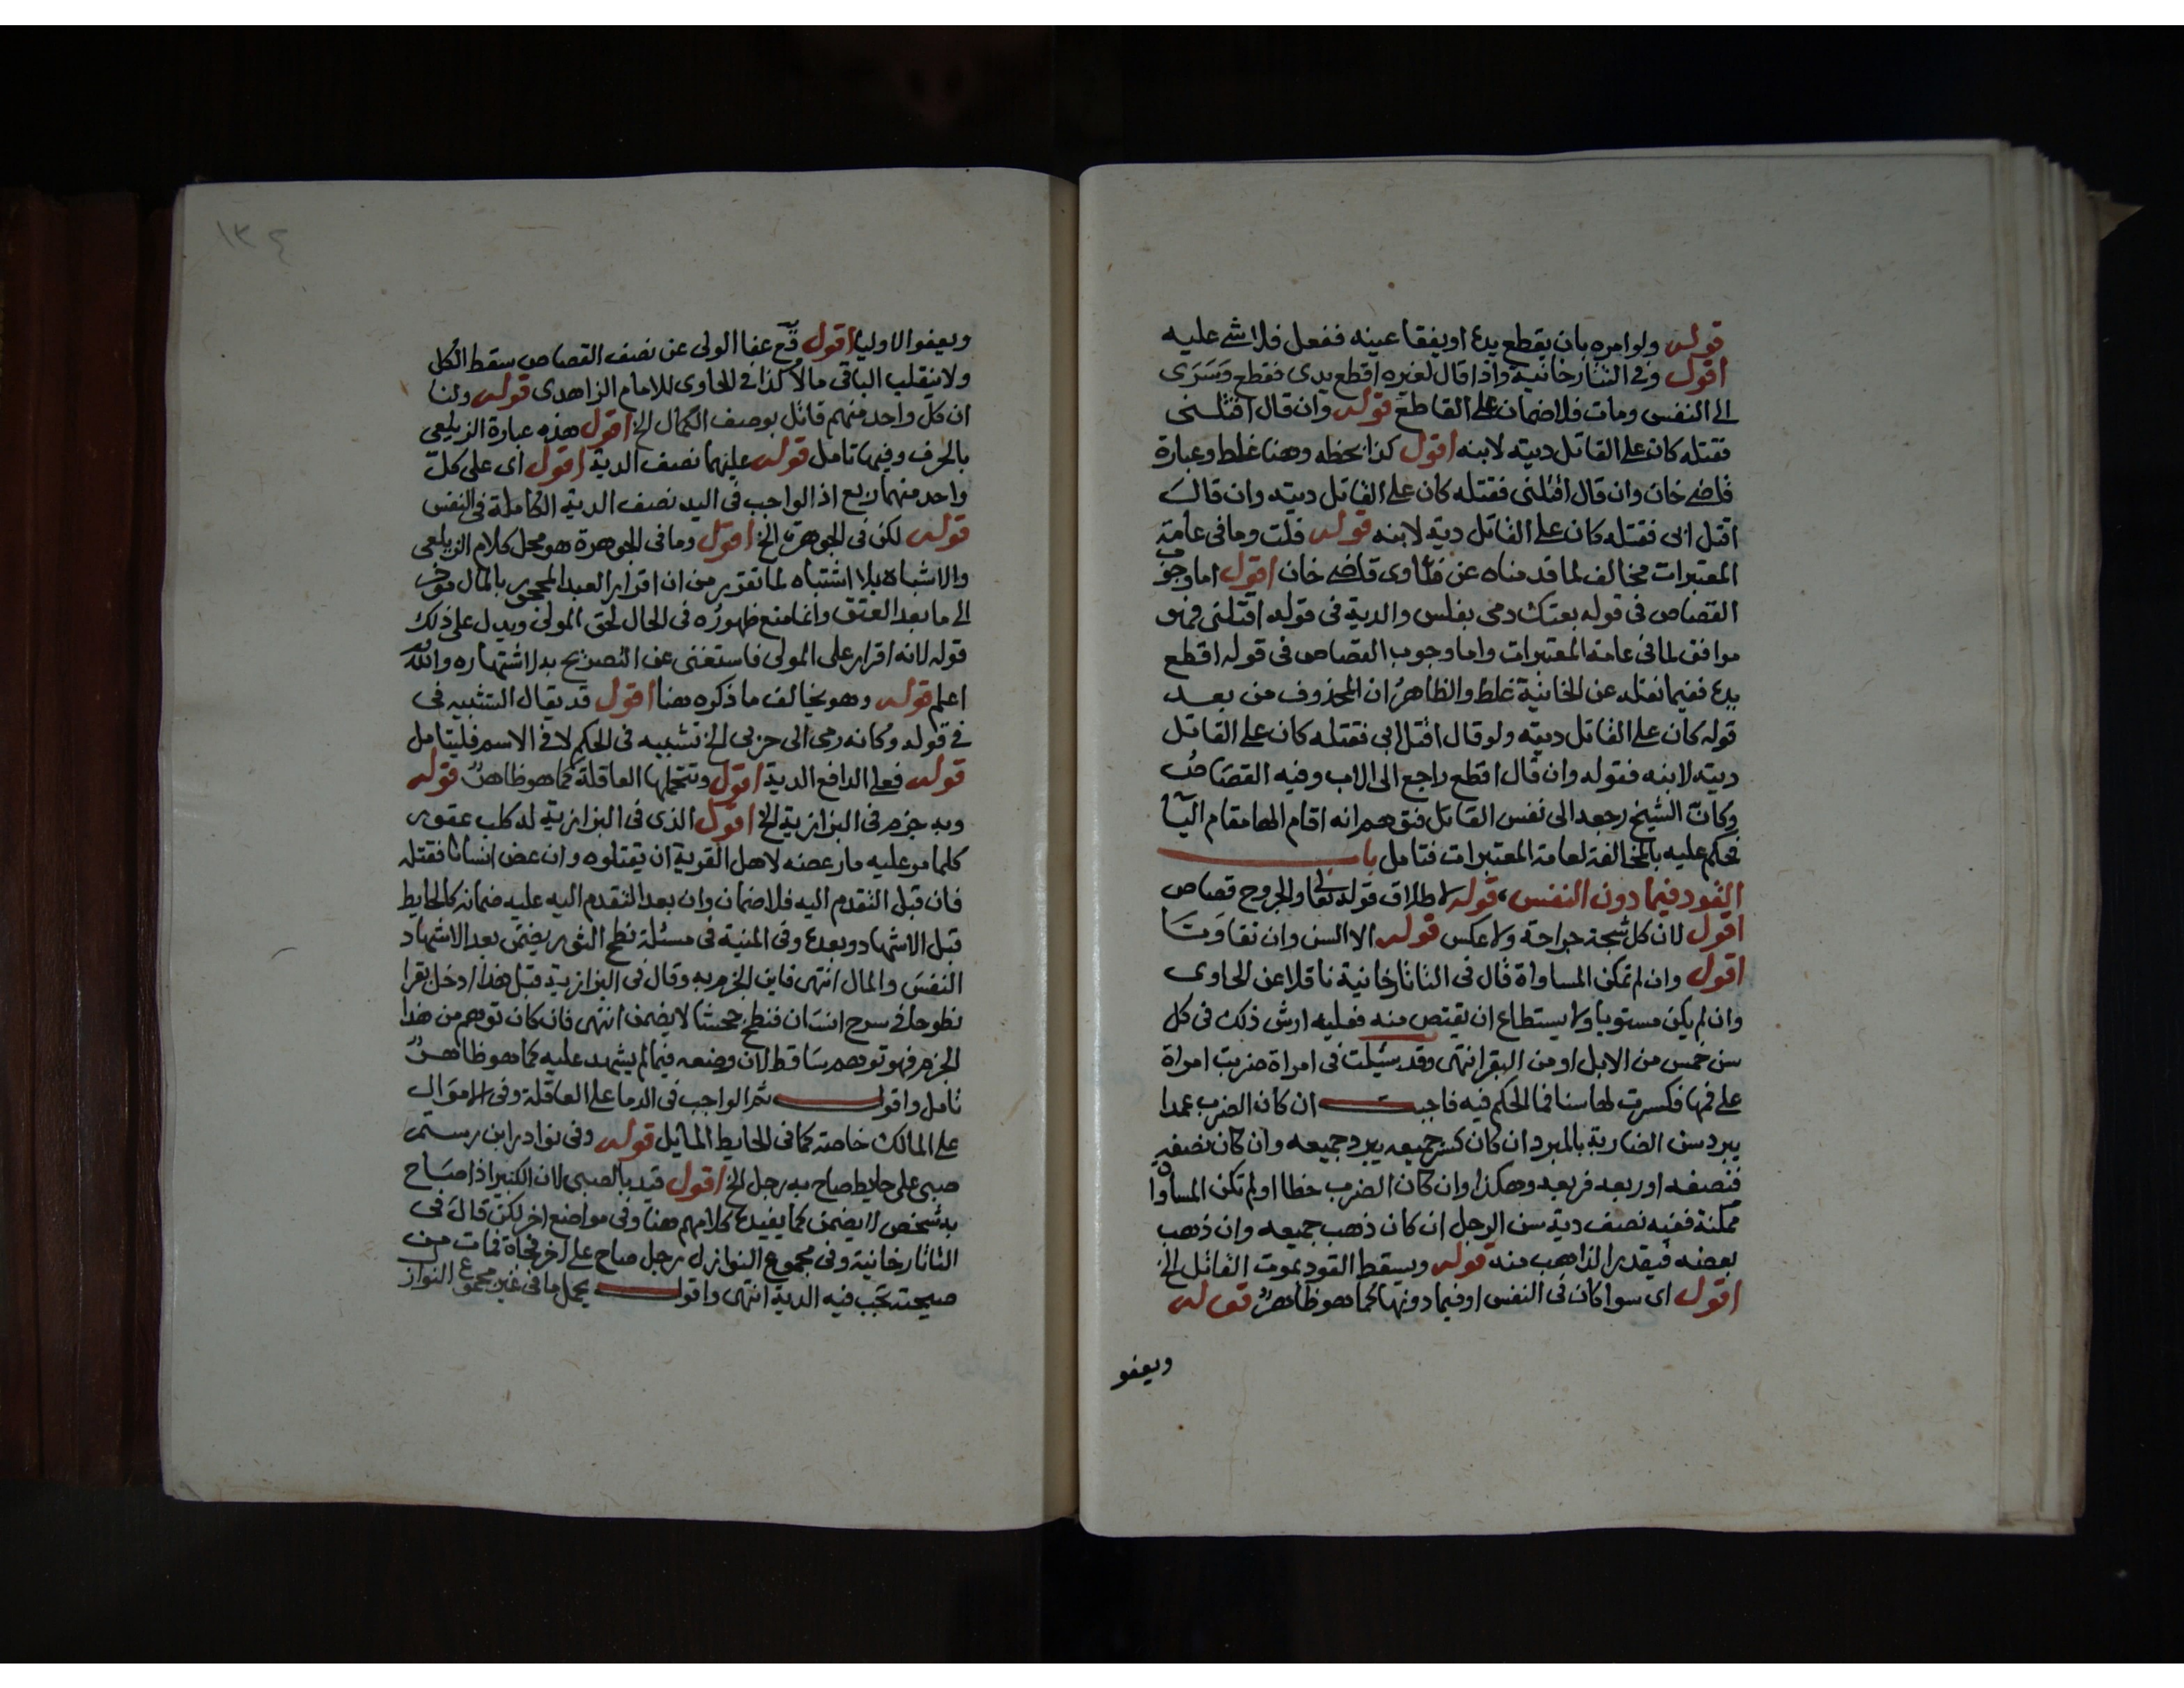 قوله ولو امره بان يقطع يده او يفقا عينه ففعل فلا شي عليه
اقول وفي التتارخانية واذا قال لغيره اقطع يدي فقطع وسرى
الى النفس ومات فلا ضمان على القاطع قوله وان قال اقتلني
فقتله كان على القاتل ديته لابنه اقول كذا بخطه وهنا غلط وعبارة
قاضي خان وان قال اقتلني فقتله كان على القاتل ديته وان قال
اقتل ابي فقتله كان على القاتل دية لابنه قوله قلت وما في عامة
المعتبرات مخالف لما قدمناه عن فتاوى قاضي خان اقول اما وجوب
القصاص في قوله بعتك دمي بفلس والدية في قوله اقتلني فهو
موافق لما في عامة المعتبرات واما وجوب القصاص في قوله اقطع
يده ففيما نقله عن الخانية غلط والظاهر ان المحذوف من بعد
قوله كان على القاتل ديته ولو قال اقتل ابي فقتله كان على القاتل
ديته لابنه فقوله وان قال اقطع راجع الى الاب وفيه القصاص
وكان الشيخ رجعه الى نفس القاتل فتوهم انه اقام الها مقام اليا
فحكم عليه بالمخالفة لعامة المعتبرات فتامل باب
القود فيما دون النفس، قوله لاطلاق قوله تعالى والجروح قصاص
اقول لان كل شجة جراحة ولا عكس قوله الا السن وان تفاوتا
اقول وان لم تمكن المساواة قال في التاتارخانية ناقلا عن الحاوى
وان لم يكن مستويا ولا يستطاع ان يقتص منه فعليه ارش ذلك في كل
سن خمس من الابل او من البقر انتهى وقد سئلت في امراة ضربت امراة
على فمها فكسرت لها سنا فما الحكم فيه فاجبت ان كان الضرب عمدا
يبرد سن الضاربة بالمبرد ان كان كسر جميعه يبرد جميعه وان كان نصفه
فنصفه او ربعه فربعه وهكذا وان كان الضرب خطا او لم تكن المساواة
ممكنة ففيه نصف دية سن الرجل ان كان ذهب جميعه وان ذهب
بعضه فيقدر الذاهب منه قوله ويسقط القود بموت القاتل الخ
اقول اى سوا كان في النفس او فيما دونها كما هو ظاهر قوله
ويعفو
١٣٤
ويعفو الاوليا اقول قع عفا الولى عن نصف القصاص سقط الكل
ولا ينقلب الباقى مالا كذا في الحاوى للامام الزاهدى قوله ولنا
ان كل واحد منهم قاتل بوصف الكمال الخ اقول هذه عبارة الزيلعى
بالحرف وفيها تامل قوله عليهما نصف الدية اقول اى على كل
واحد منهما ربع اذ الواجب في اليد نصف الدية الكاملة في النفس
قوله لكن في الجوهرة الخ اقول وما في الجوهرة هو محل كلام الزيلعى
والاشباه بلا اشتباه لما تقرر من ان اقرار العبد المحجور بالمال موخر
الى ما بعد العتق وانما منع ظهوره في الحال لحق المولى ويدل على ذلك
قوله لانه اقرار على المولى فاستغنى عن التصريح به لاشتهاره والله
اعلم قوله وهو يخالف ما ذكره هنا اقول قد يقال التشبيه في
في قوله وكانه رمى الى حربى الخ تشبيه في الحكم لا في الاسم فليتامل
قوله فعلى الدافع الدية اقول وتتحملها العاقلة كما هو ظاهر قوله
وبه جزم في البزازية الخ اقول الذى في البزازية له كلب عقور
كلما مر عليه مار عضه لاهل القرية ان يقتلوه وان عض انسانا فقتله
فان قبل التقدم اليه فلا ضمان وان بعد التقدم اليه عليه ضمانه كالحايط
قبل الاشهاد وبعده وفي المنية في مسئلة نطح الثور يضمن بعد الاشهاد
النفس والمال انتهى فاين الجزم به وقال في البزازية قبل هذا ادخل بقرا
نطوحا في سرح انسان فنطح جحشا لا يضمن انتهى فان كان توهم من هذا
الجزم فهو توهم ساقط لان وضعه فيما لم يشهد عليه كما هو ظاهر
تامل واقول ثم الواجب في الدما على العاقلة وفي الاموال
على المالك خاصة كما في الحايط المايل قوله وفي نوادر ابن رستم
صبى على حايط صاح به رجل الخ اقول قيد بالصبى لان الكبير اذا صاح
به شخص لا يضمن كما يفيده كلامهم هنا وفي مواضع اخر لكن قال في
التاتارخانية وفي مجموع النوازل رجل صاح على اخر فجاة فمات من
صيحته تجب فيه الدية انتهى واقول يحمل ما في غير مجموع النوازل